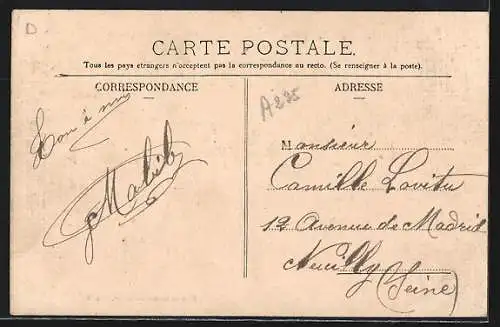 D
CARTE POSTALE.
Tous les pays étrangers n'acceptent pas la correspondance au recto. (Se renseigner à la poste).
CORRESPONDANCE
ADRESSE
A235
Monsieur
Camille
12 Avenue de Madrid
Neuilly
(Seine)